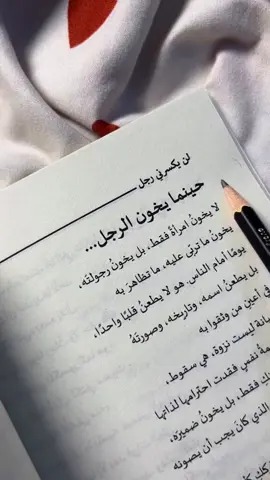 لن يكسرني رجل
حينما يخون الرجل...
لا يخونُ امرأةً فقط، بل يخونُ رجولتَه،
يخونُ ما تربّى عليه، ما تظاهرَ به
يومًا امام الناس. هو لا يطعنُ قلبًا واحدًا،
بل يطعنُ اسمه، وتاريخه، وصورتَهُ
في أعين من وثقوا به
ليست نزوة، هي سقوط،
نفسٍ فقدت احترامها لذاتها
فقط، بل يخونُ ضميرَه،
الذي كانَ يجب أن يصونه